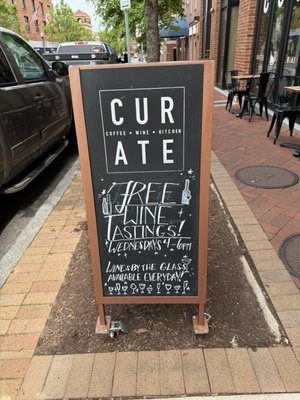 CUR
COFFEE + WINE + KITCHEN
ATE
FREE
WINE
TASTINGS!
WEDNESDAYS 4-6PM
WINES BY THE GLASS
AVAILABLE EVERYDAY!